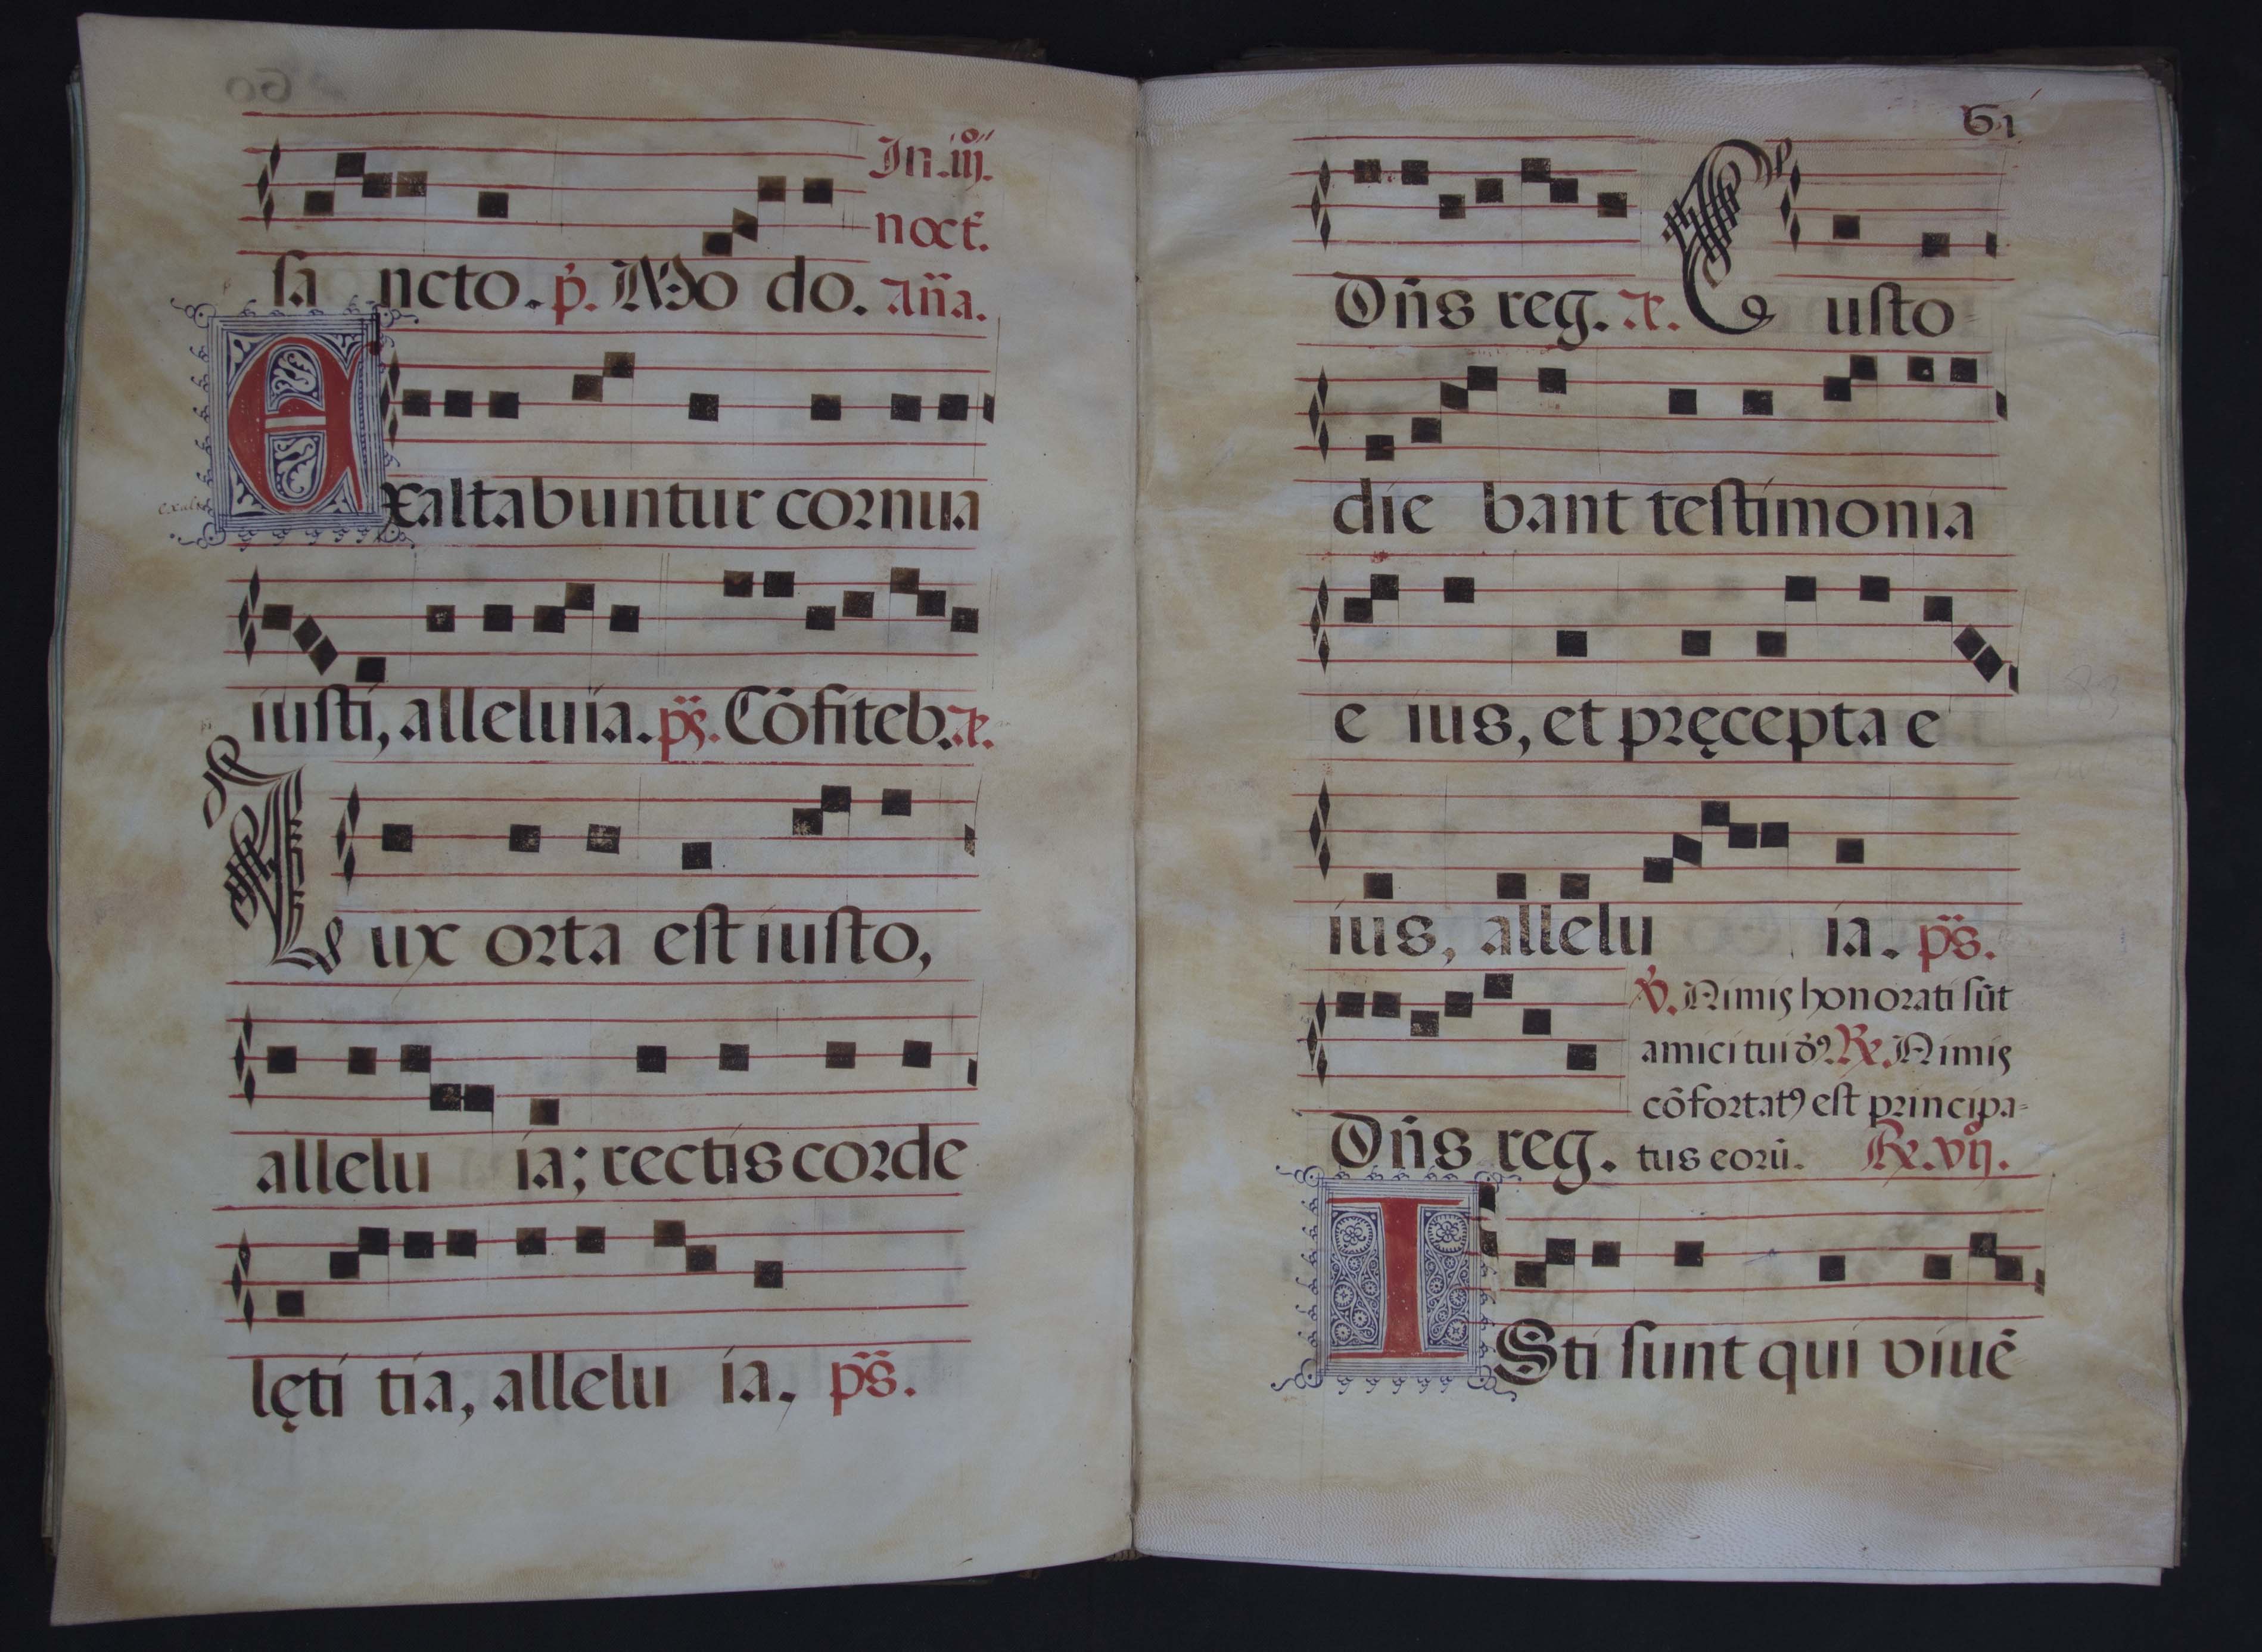 In .iij.º
noct̄.
sancto. p̄. Modo. An̄a.
Exaltabuntur cornua
iusti, alleluia. ps̄. Cōfiteb. Æ.
Lux orta est iusto,
allelu ia; rectis corde
lęti tia, allelu ia. ps̄.
61
Dn̄s reg. Æ. Custo
die bant testimonia
e ius, et pręcepta e
ius, allelu ia. ps̄.
Dn̄s reg.
℣. Nimis honorati sūt
amici tui dꝰ ℟. Nimis
cōfortatꝰ est principa-
tus eorū. ℟. vij.
ISti sunt qui viuē